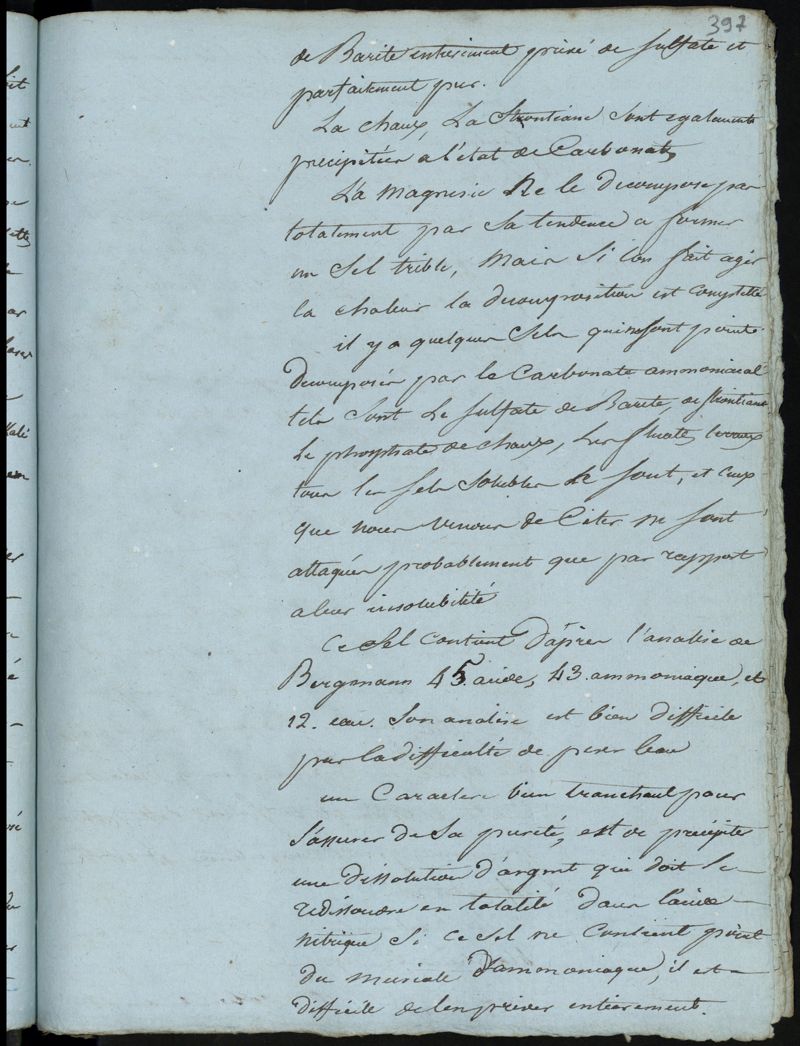 397
de Barite entierement privé de sulfate et
parfaitement pur.
La chaux, La Strontiane sont egalement
precipitées a l'état de Carbonate
La Magnesie Ne le decompose pas
totalement par sa tendence a former
un Sel trible, Mais Si l'on fait agir
la chaleur la decomposition est complette
il y a quelques Sels qui ne sont points
Decomposés par le Carbonate ammoniacal
tels sont Le sulfate de Barite, de strontiane
Le phosphate de chaux, Les fluates
tous les sels solubles Le sont, et ceux
que nous venons de Citer ne sont
attaqués probablement que par rapport
a leur insolubilité
Ce Sel contient D'après l'analise de
Bergmann 45. acide, 43. ammoniaque, et
12. eau. Son analise est bien difficile
par la difficulté de peser l'eau
un Caractere bien tranchant pour
S'assurer de Sa pureté, est de précipiter
une dissolution d'argent qui doit Se
redissoudre en totalité dans l'acide
Nitrique Si ce Sel ne Contient point
Du Muriate D'ammoniaque, il est
difficile de l'en priver entierement.